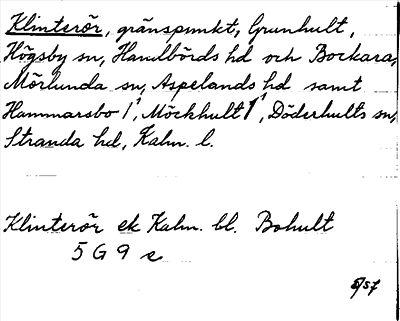 Klinterör, gränspunkt, Grunhult,
Högsby sn, Handbörds hd och Bockara,
Mörlunda sn, Aspelands hd samt
Hammarsbo 1¹, Möckhult 1¹, Döderhults sn,
Stranda hd, Kalm. l.
Klinterör ek Kalm. bl. Bohult
5 G 9 e
8/57